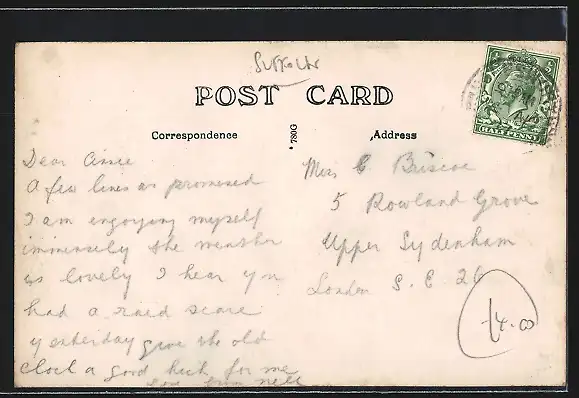 Suffolk
POST CARD
Correspondence
Address
*780G
HALFPENNY
Dear Cissie
A few lines as promised
I am enjoying myself
immensely the weather
is lovely I hear yu
had a raid scare
yesterday give the old
clock a good kick for me
Miss C Briscoe
5 Rowland Grove
Upper Sydenham
London S.E 26
14.00